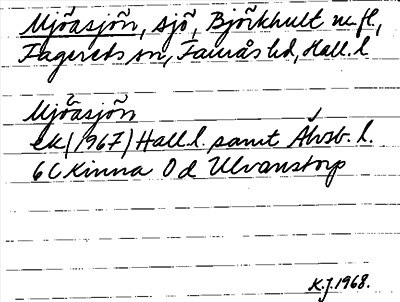 Mjöasjön, sjö, Björkhult m.fl,
Fagereds sn, Faurås hd, Hall.l
Mjöasjön
ek (1967) Hall.l. samt Älvsb. l.
6C Kinna 0 d Ulvanstorp
K.J. 1968.